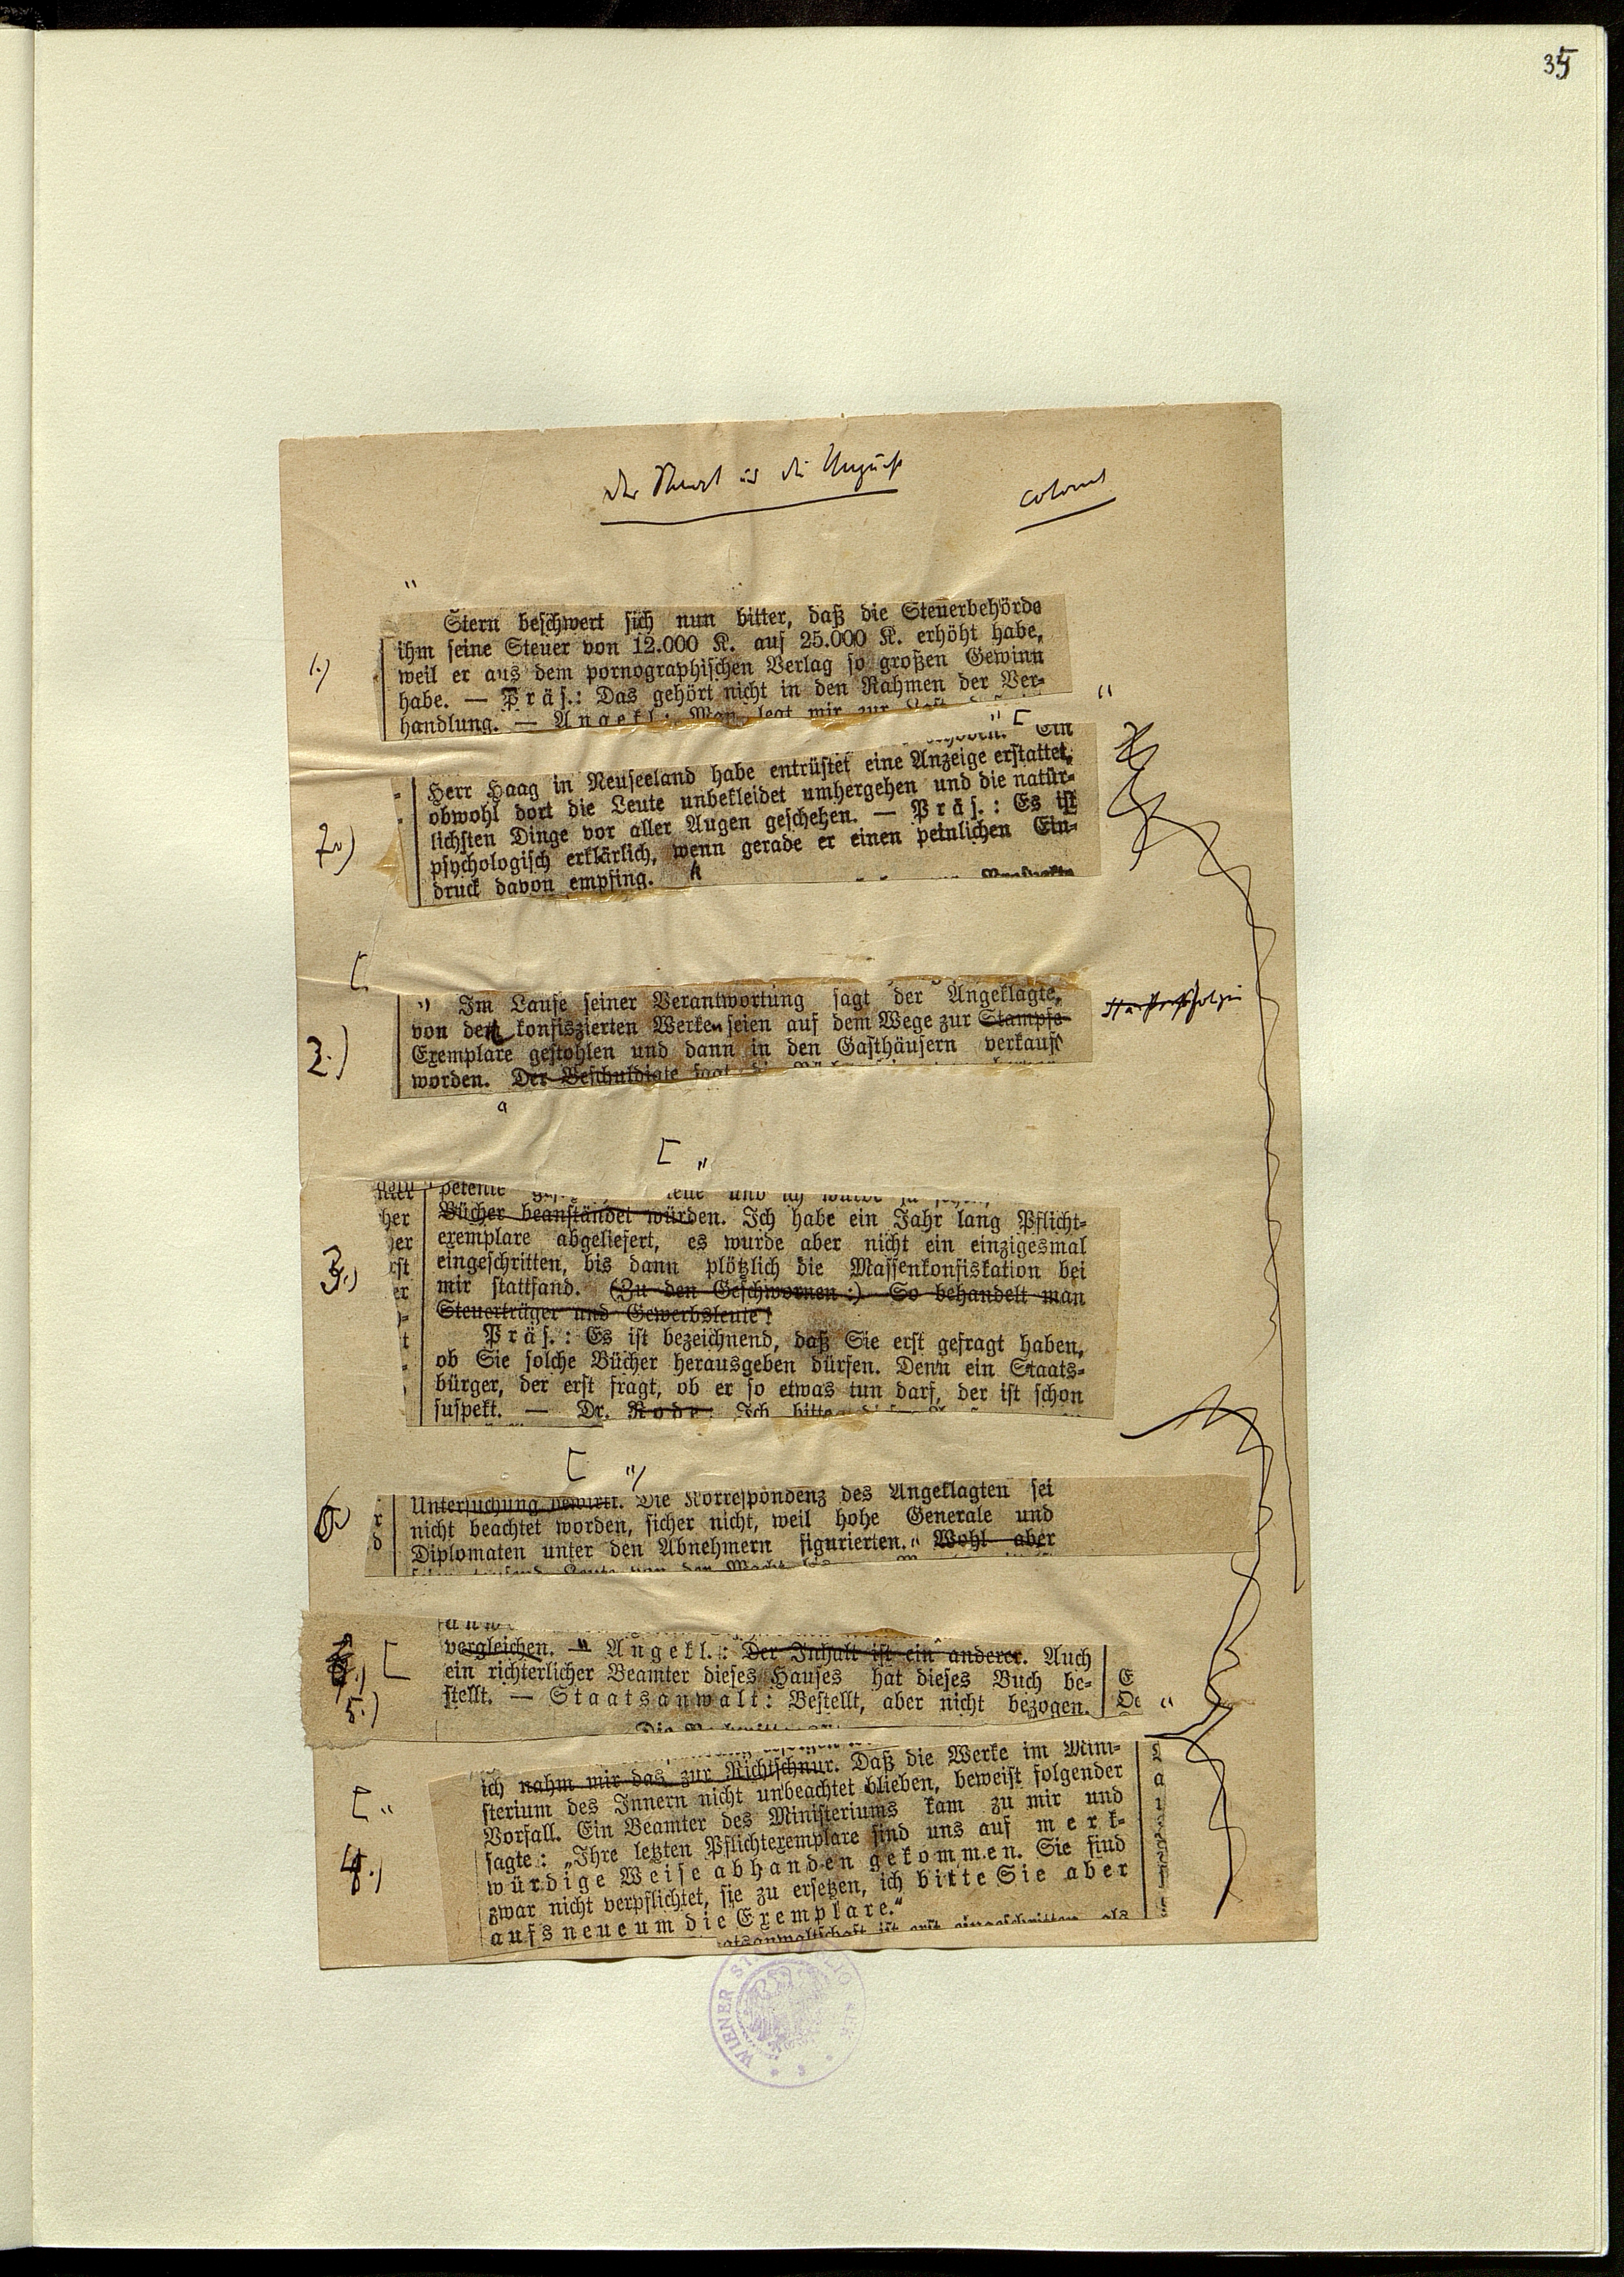 35
Der Staat und die Unzucht
"
1.)
Stern beschwert sich nun bitter, daß die Steuerbehörde
ihm seine Steuer von 12.000 K. auf 25.000 K. erhöht habe,
weil er aus dem pornographischen Verlag so großen Gewinn
habe. — Präs.: Das gehört nicht in den Rahmen der Ver-
handlung. — Angekl.: Man legt mir zur
"
" [ Ein
7.)
Herr Haag in Neuseeland habe entrüstet eine Anzeige erstattet,
obwohl dort die Leute unbekleidet umhergehen und die natür-
lichsten Dinge vor aller Augen geschehen. — Präs.: Es ist
psychologisch erklärlich, wenn gerade er einen peinlichen Ein-
druck davon empfing. "
[
2.)
" Im Laufe seiner Verantwortung sagt der Angeklagte,
von den konfiszierten Werken seien auf dem Wege zur Stampfe
Exemplare gestohlen und dann in den Gasthäusern verkauft
worden. Der Beschuldigte sagt
"
[ "
3.)
Bücher beanständet würden. Ich habe ein Jahr lang Pflicht-
exemplare abgeliefert, es wurde aber nicht ein einzigesmal
eingeschritten, bis dann plötzlich die Massenkonfiskation bei
mir stattfand. (Zu den Geschwornen:) So behandelt man
Steuerträger und Gewerbsleute!
Präs.: Es ist bezeichnend, daß Sie erst gefragt haben,
ob Sie solche Bücher herausgeben dürfen. Denn ein Staats-
bürger, der erst fragt, ob er so etwas tun darf, der ist schon
suspekt. — Dr. Rode: Ich bitte
[ "
6.)
Untersuchung Die Korrespondenz des Angeklagten sei
nicht beachtet worden, sicher nicht, weil hohe Generale und
Diplomaten unter den Abnehmern figurierten. " Wohl aber
[
5.)
vergleichen. — " Angekl.: Der Inhalt ist ein anderer. Auch
ein richterlicher Beamter dieses Hauses hat dieses Buch be-
stellt. — Staatsanwalt: Bestellt, aber nicht bezogen. "
[ "
4.)
ich nahm mir das zur Richtschnur. Daß die Werke im Mini-
sterium des Innern nicht unbeachtet blieben, beweist folgender
Vorfall. Ein Beamter des Ministeriums kam zu mir und
sagte: „Ihre letzten Pflichtexemplare sind uns auf merk-
würdige Weise abhanden gekommen. Sie sind
zwar nicht verpflichtet, sie zu ersetzen, ich bitte Sie aber
aufs neue um die Exemplare."
atsanwaltschaft ist erst eingeschritten, als
WIENER